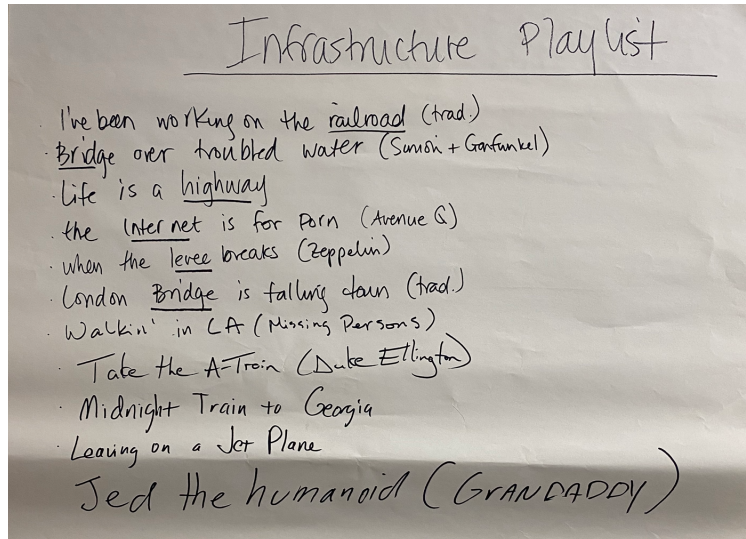 Infrastructure Playlist
· I've been working on the railroad (trad.)
· Bridge over troubled water (Simon + Garfunkel)
· Life is a highway
· the Internet is for Porn (Avenue Q)
· when the levee breaks (Zeppelin)
· London Bridge is falling down (trad.)
· Walkin' in LA (Missing Persons)
· Take the A-Train (Duke Ellington)
· Midnight Train to Georgia
· Leaving on a Jet Plane
Jed the humanoid (GRANDADDY)